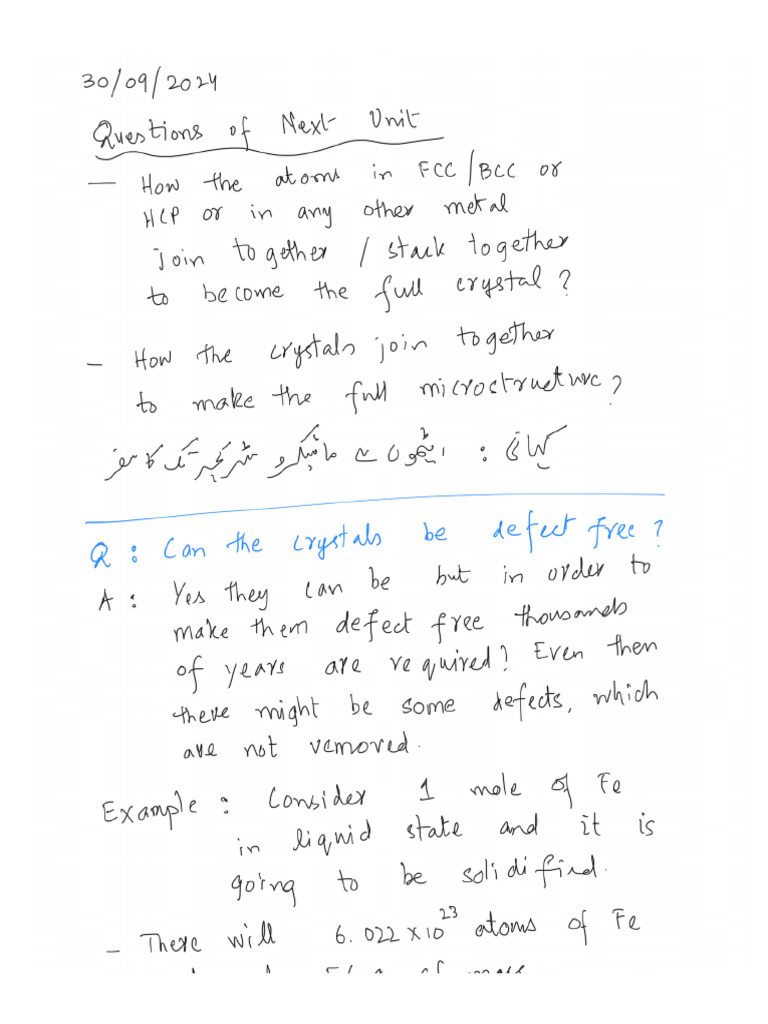 30/09/2024
Questions of Next Unit
— How the atoms in FCC/BCC or
HCP or in any other metal
join together / stack together
to become the full crystal?
- How the crystals join together
to make the full microctructure?
کہانی : ایٹموں سے مائیکرو سٹرکچر تک کا سفر
Q: Can the crystals be defect free?
A: Yes they can be but in order to
make them defect free thousands
of years are required? Even then
there might be some defects, which
are not removed.
Example: Consider 1 mole of Fe
in liquid state and it is
going to be solidified.
- There will 6.022 x 10^23 atoms of Fe